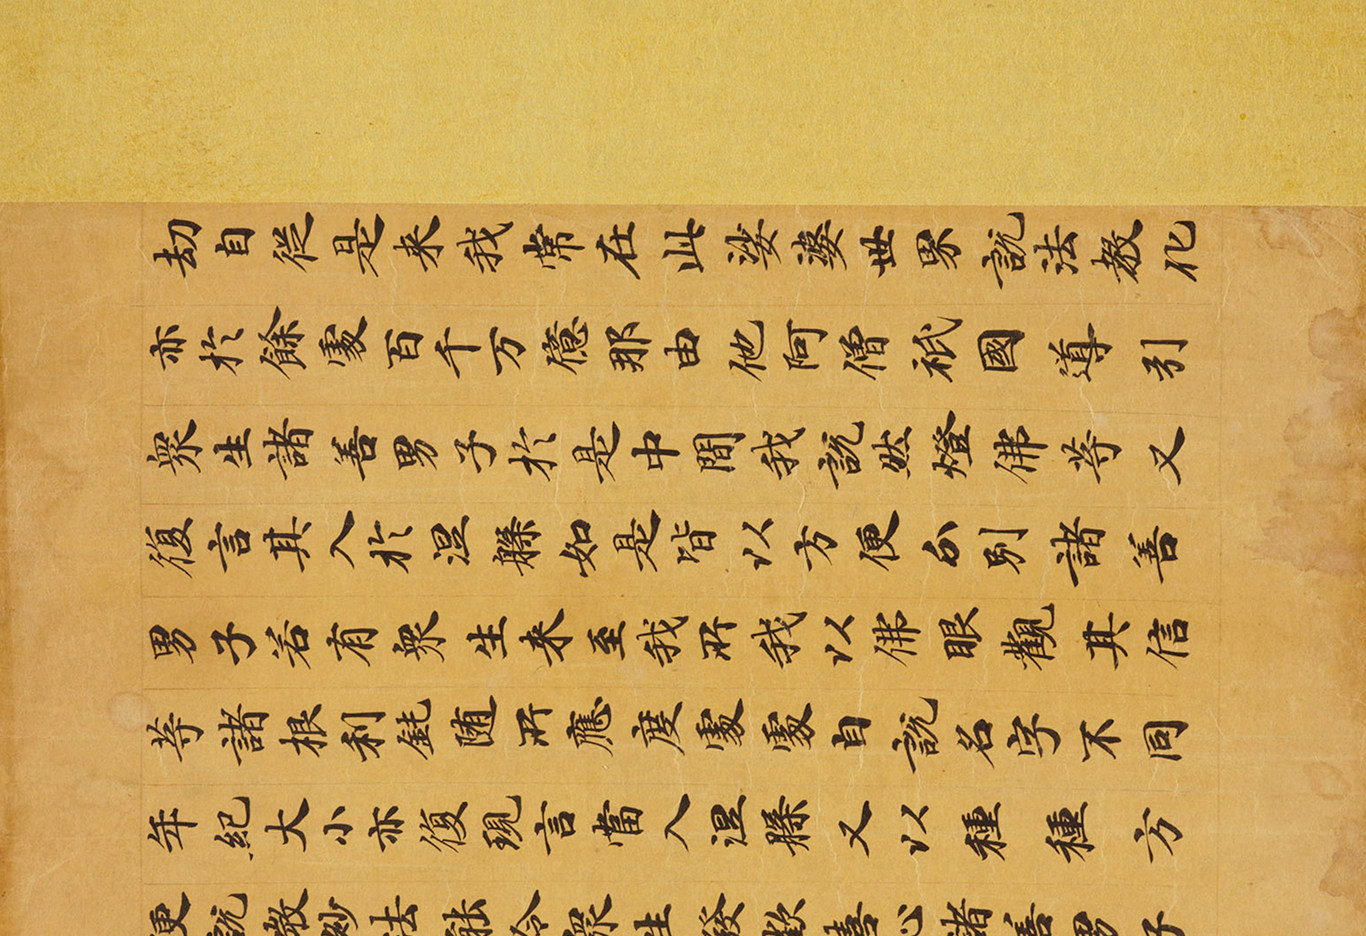 劫自從是来我常在此娑婆世界說法教化
亦於餘處百千万億那由他阿僧祇國導引
衆生諸善男子於是中間我說然燈佛等又
復言其入於涅槃如是皆以方便分別諸善
男子若有衆生来至我所我以佛眼觀其信
等諸根利鈍随所應度處處自說名字不同
年紀大小亦復現言當入涅槃又以種種方
便說微妙法能令衆生發歡喜心諸善男子